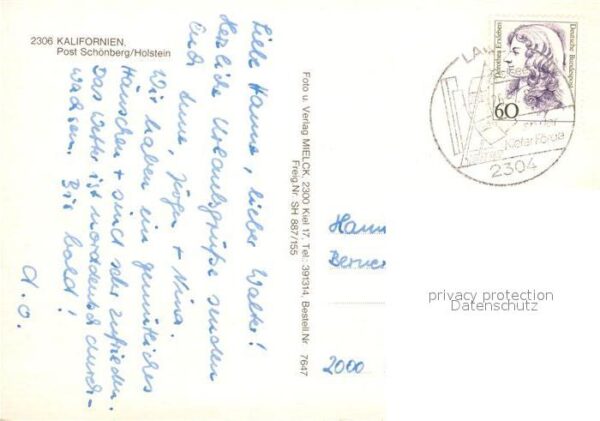 2306 KALIFORNIEN,
Post Schönberg/Holstein
Liebe Hanna, lieber Walter!
Herzliche Urlaubsgrüße senden
Euch Anne, Jörgen + Nina.
Wir haben ein gemütliches
Häuschen + sind sehr zufrieden.
Das Wetter ist norddeutsch durch-
wachsen. Bis bald!
A. O.
Foto u. Verlag MIELCK, 2300 Kiel 17, Tel.: 391314, Bestell.Nr. 7647
Freig.Nr. SH 887/155
Dorothea Erxleben
Deutsche Bundespost
60
LA
an der
Kieler Förde
2304
Hann
Berner
2000
privacy protection
Datenschutz